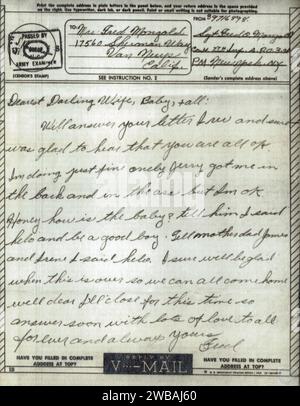 Print the complete address in plain letters in the panel below, and your return address in the space provided
on the right. Use typewriter, dark ink, or dark pencil. Faint or small writing is not suitable for photographing.
PASSED BY
ARMY EXAMINER
(CENSOR'S STAMP)
To: Mrs. Fred Mongold
17560 Sherman Way
Van Nuys
Calif.
From:
SEE INSTRUCTION NO. 2
(Sender's complete address above)
Dearest Darling Wife, Baby & all:
Will answer your letter I rec and sure
was glad to hear that you are all ok
Im doing just fin onely Jerry got me in
the back and in the ass but Im ok
Honey how is the baby? tell him I said
helo and be a good boy. Tell mother dad Jones
and Irene I said helo. I sure will be glad
when this is over so we can all come home
well dear I'll close for this time so
answer soon with lots of love to all
for ever and always yours
Fred
HAVE YOU FILLED IN COMPLETE
ADDRESS AT TOP?
REPLY BY
V···-MAIL
HAVE YOU FILLED IN COMPLETE
ADDRESS AT TOP?
alamy
Image ID: 2WBAJ60
www.alamy.com